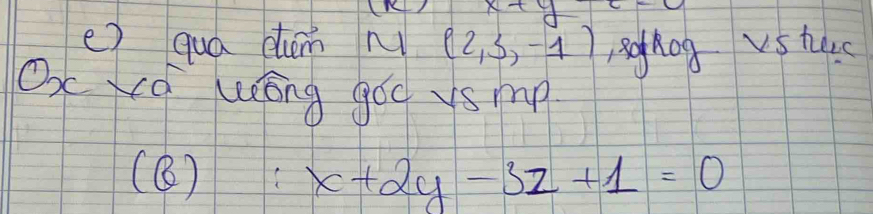 e) qua điểm N (2,3,-1), sog sog vs trục
Ox và vuông góc vs mp.
(β) : x+2y-3z+1=0